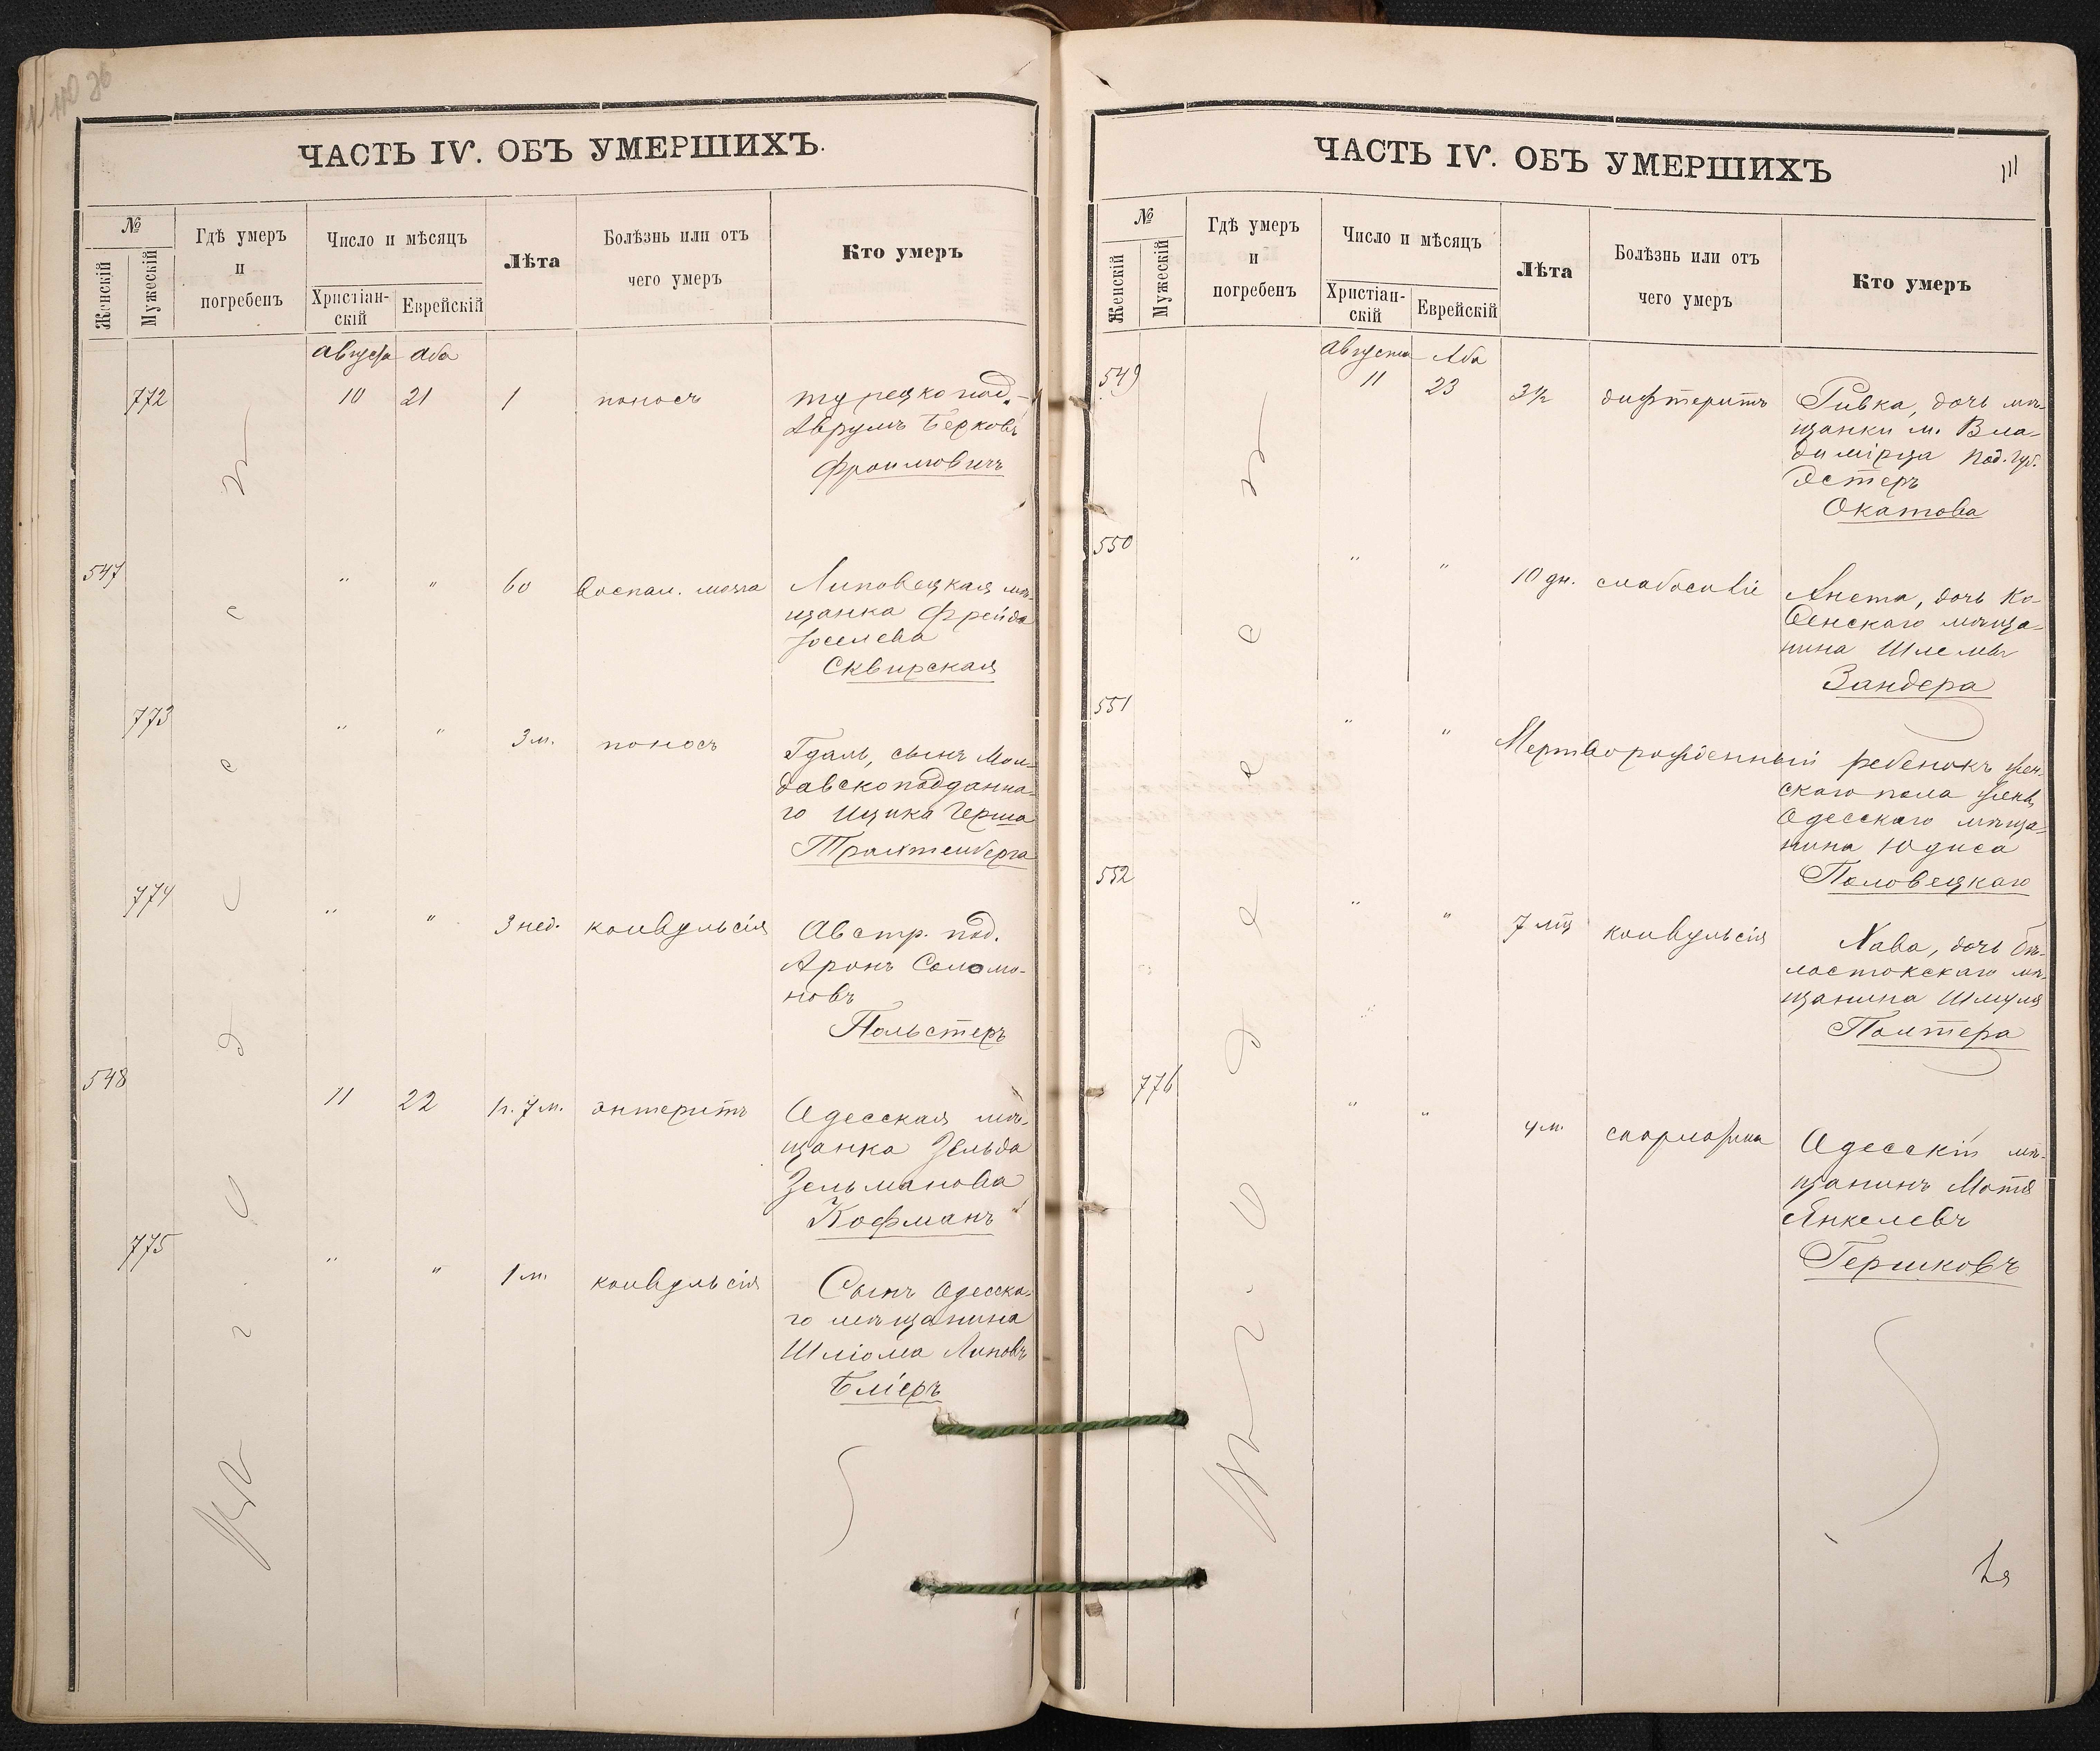 ЧАСТЬ IV. ОБЪ УМЕРШИХЪ.
№
Женскій
Мужескій
Гдѣ умеръ
и
погребенъ
Число и мѣсяцъ
Христіан-
скій
Еврейскій
Лѣта
Болѣзнь или отъ
чего умеръ
Кто умеръ
въ г. Одессѣ
августа Аба
772 10 21 1 поносъ турецкопод.
Аврумъ Берковъ
Фроимовичъ
547 " " 60 воспал. мозга Липовецкая мѣ-
щанка Фрейда
Іоселева
Сквирская
773 " " 3 м. поносъ Гдаль, сынъ Мол-
давскоподданна-
го Ицика Герша
Трахтенберга
774 " " 3 нед. конвульсія Австр. под.
Аронъ Соломо-
новъ
Польстеръ
548 11 22 1 г. 7 м. энтеритъ Одесская мѣ-
щанка Зельда
Зельманова
Кофманъ
775 " " 1 м. конвульсія Сынъ Одесска-
го мѣщанина
Шліома Липовъ
Бліеръ
ЧАСТЬ IV. ОБЪ УМЕРШИХЪ
111
№
Женскій
Мужескій
Гдѣ умеръ
и
погребенъ
Число и мѣсяцъ
Христіан-
скій
Еврейскій
Лѣта
Болѣзнь или отъ
чего умеръ
Кто умеръ
въ г. Одессѣ
Августа Аба
549 11 23 3½ дифтеритъ Ривка, дочь мѣ-
щанки м. Вла-
димірца Под. губ.
Эстеръ
Окатова
550 " " 10 дн. слабосиліе Анета, дочь Ко-
венскаго мѣща-
нина Шлемы
Зандера
551 " " Мертворожденный ребенокъ жен-
скаго пола жены
Одесскаго мѣща-
нина Юдиса
Половецкаго
552 " " 7 мц конвульсія Хава, дочь Бѣ-
лостокскаго мѣ-
щанина Шмуля
Полтера
776 " " 4 м. Одесскій мѣ-
щанинъ Мотя
Янкелевъ
Гершковъ